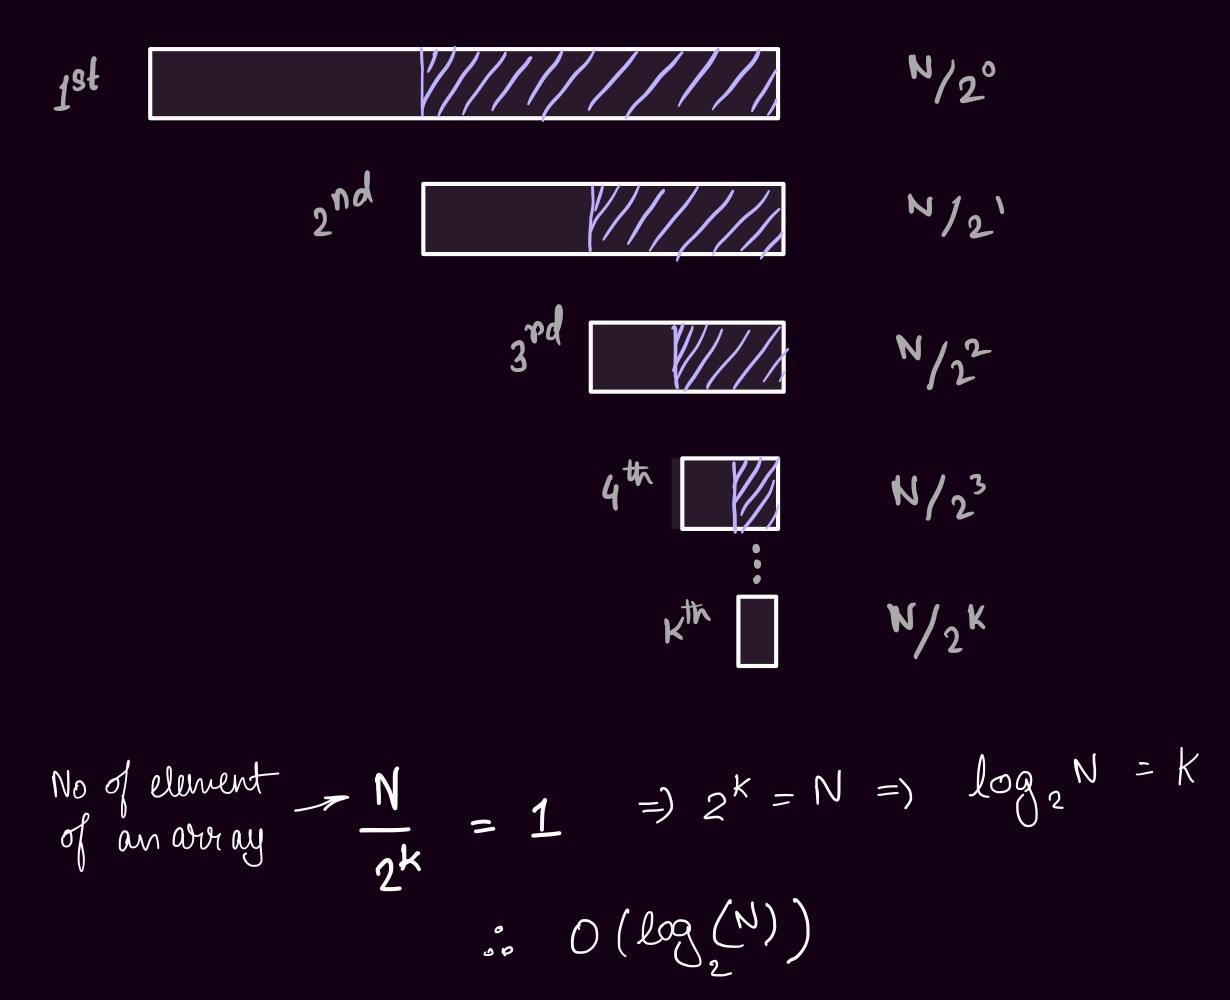 1st N/2⁰
2nd N/2¹
3rd N/2²
4th N/2³
⋮
kth N/2ᴷ
No of element of an array → N/2ᵏ = 1 ⇒ 2ᵏ = N ⇒ log₂ N = K
∴ O(log₂(N))